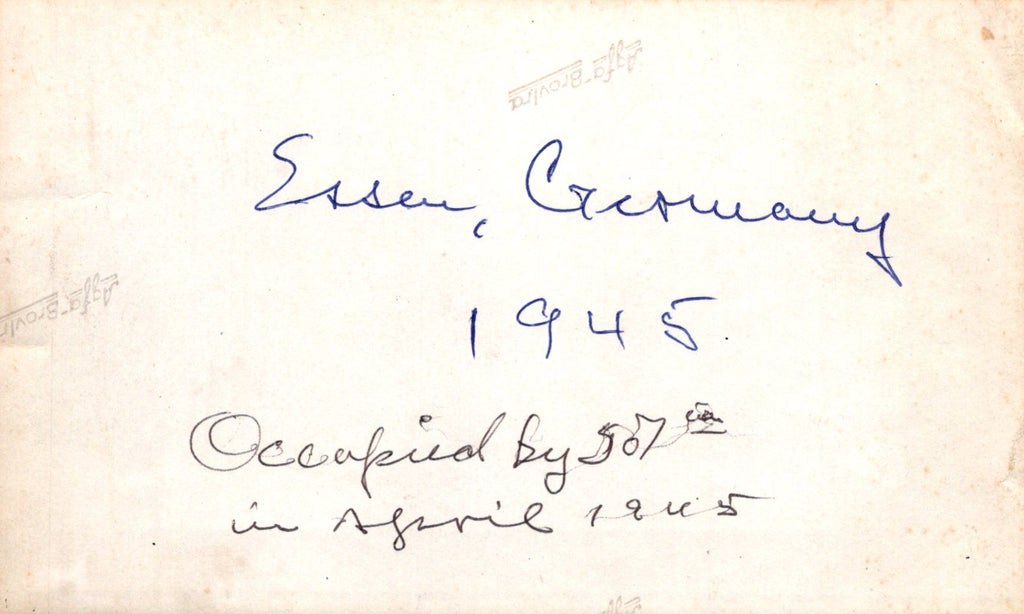 Agfa-Brovira
Essen, Germany
Agfa-Brovira
1945
Occupied by 507
in April 1945